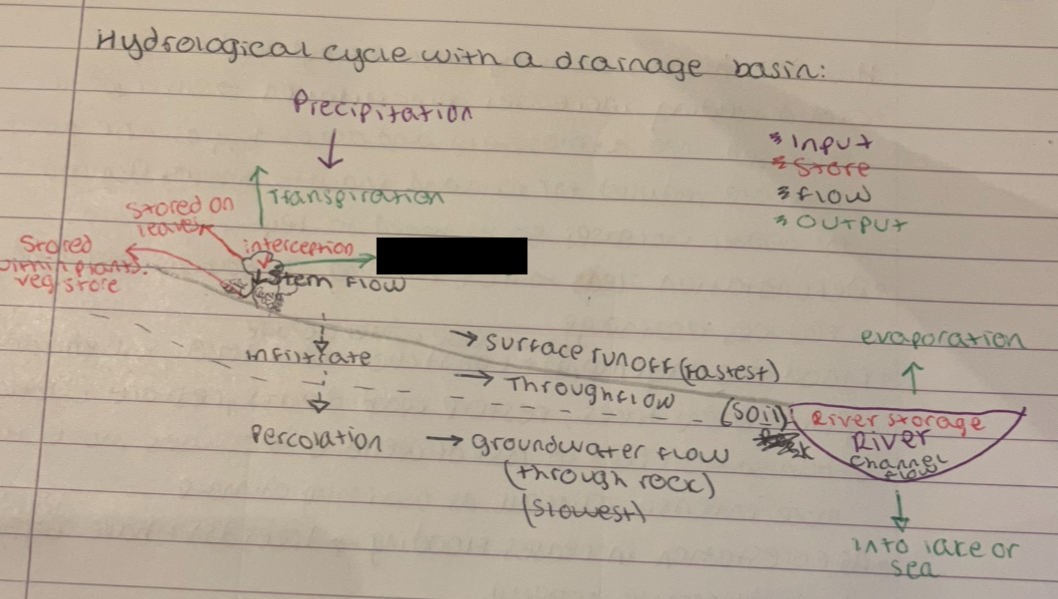 Hydrological cycle with a drainage basin:
Precipitation
* Input
* Store
* Flow
* Output
Transpiration
Stored on
leaves
interception
Stored
within plants.
veg store
Stem flow
infiltrate
→ surface runoff (fastest)
→ Throughflow
(soil)
evaporation
River storage
River
channel
flow
Percolation
→ groundwater flow
(through rock)
(slowest)
into lake or
sea